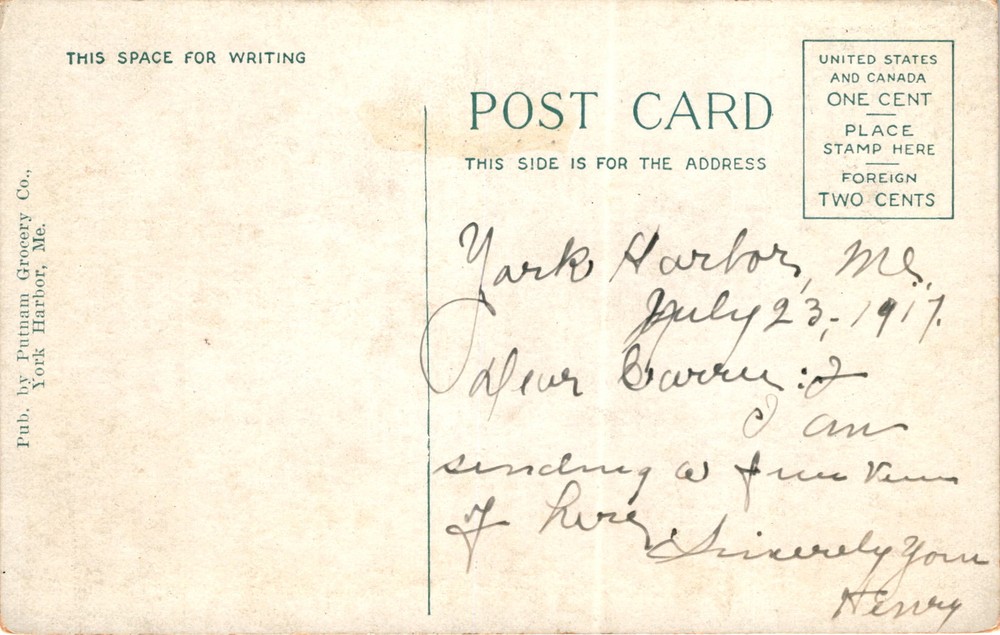 THIS SPACE FOR WRITING
POST CARD
THIS SIDE IS FOR THE ADDRESS
UNITED STATES
AND CANADA
ONE CENT
PLACE
STAMP HERE
FOREIGN
TWO CENTS
Pub. by Putnam Grocery Co.,
York Harbor, Me.
York Harbor, Me.,
July 23, 1917.
Dear
I am
sending a few views
of here.
Sincerely Your
Henry